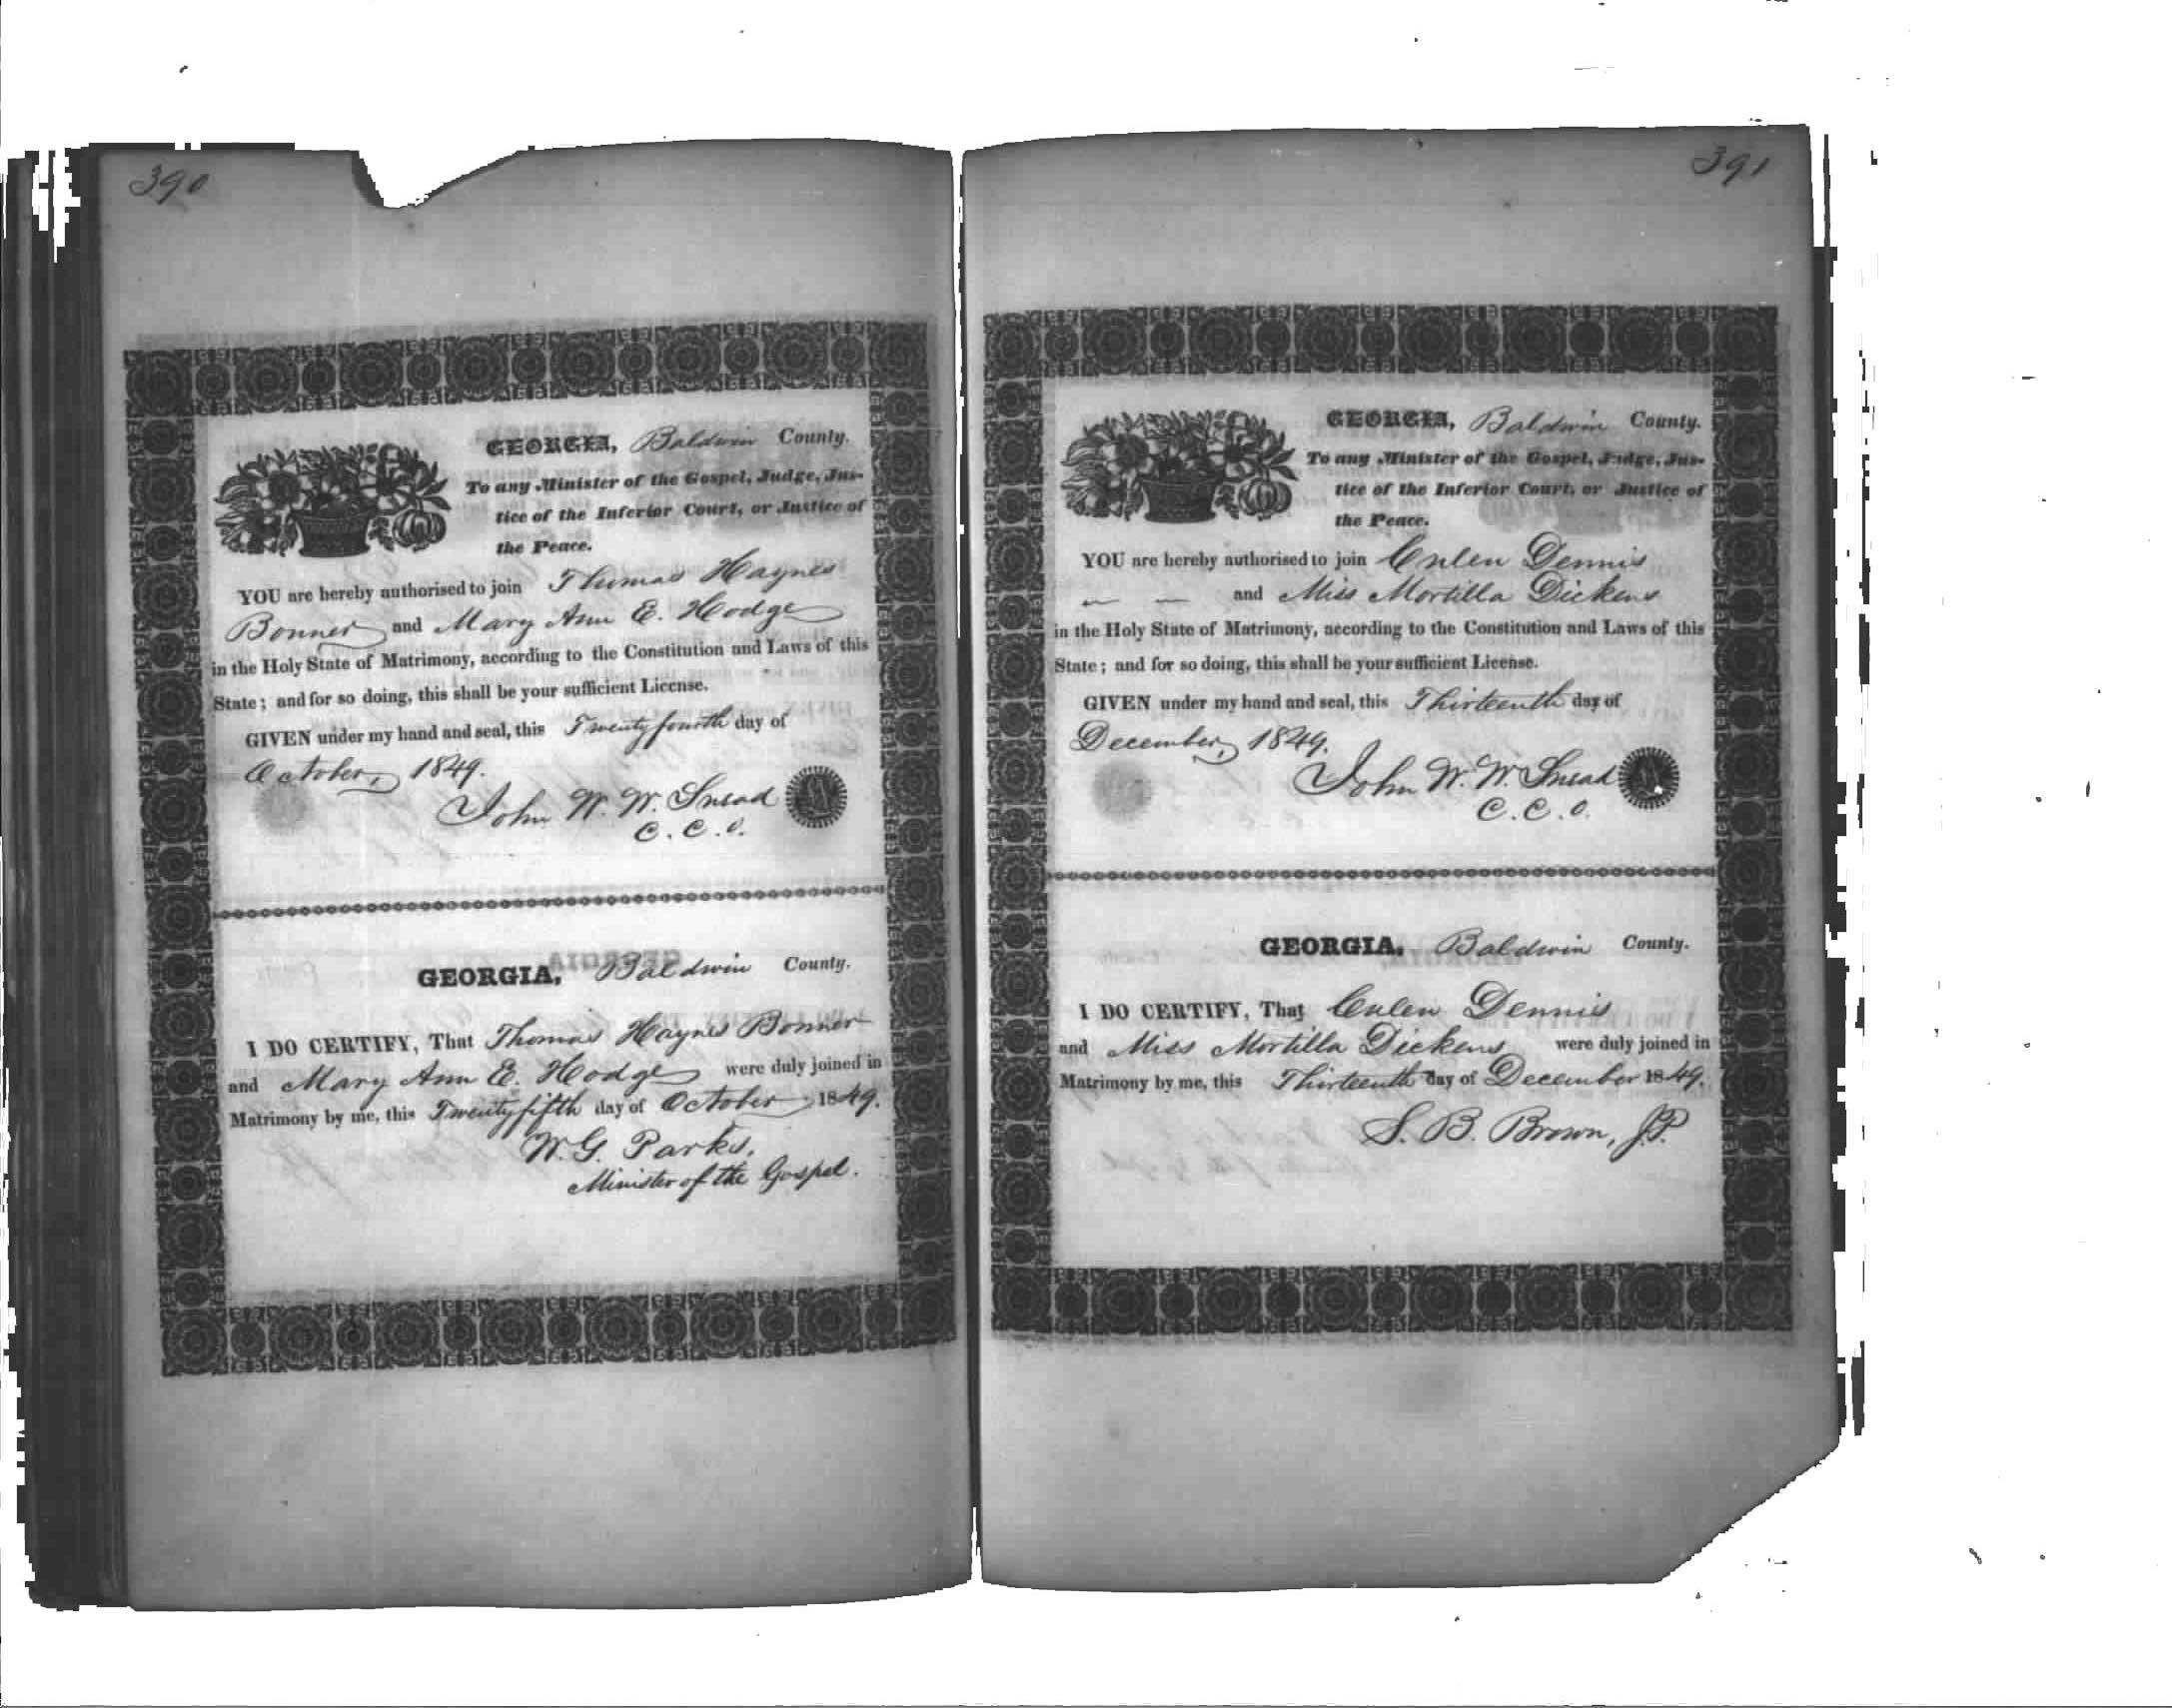 390
GEORGIA, Baldwin County.
To any Minister of the Gospel, Judge, Jus-
tice of the Inferior Court, or Justice of
the Peace.
YOU are hereby authorised to join Thomas Haynes
Bonner and Mary Ann E. Hodge
in the Holy State of Matrimony, according to the Constitution and Laws of this
State; and for so doing, this shall be your sufficient License.
GIVEN under my hand and seal, this Twenty fourth day of
October, 1849.
John W. W. Snead
C. C. O.
GEORGIA, Baldwin County.
I DO CERTIFY, That Thomas Haynes Bonner
and Mary Ann E. Hodge were duly joined in
Matrimony by me, this Twenty fifth day of October 1849.
W. G. Parks,
Minister of the Gospel.
391
GEORGIA, Baldwin County.
To any Minister of the Gospel, Judge, Jus-
tice of the Inferior Court, or Justice of
the Peace.
YOU are hereby authorised to join Culen Dennis
— — and Miss Mortilla Dickens
in the Holy State of Matrimony, according to the Constitution and Laws of this
State; and for so doing, this shall be your sufficient License.
GIVEN under my hand and seal, this Thirteenth day of
December, 1849.
John W. W. Snead
C. C. O.
GEORGIA, Baldwin County.
I DO CERTIFY, That Culen Dennis
and Miss Mortilla Dickens were duly joined in
Matrimony by me, this Thirteenth day of December 1849.
S. B. Brown, J.P.